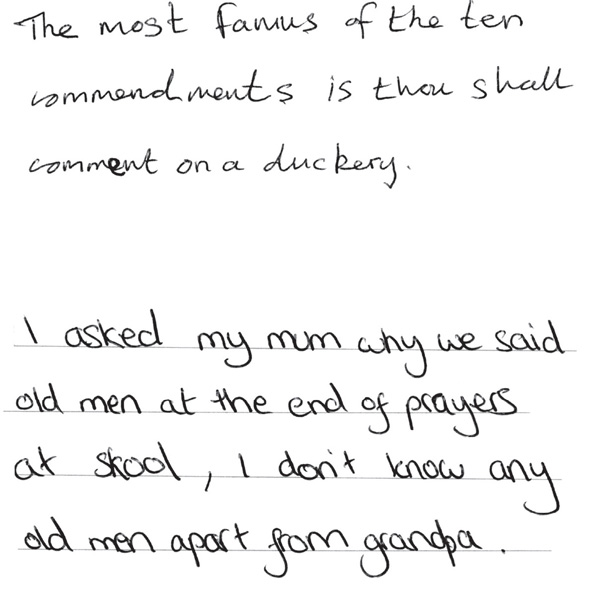 The most famus of the ten
commendments is thou shall
comment on a duckery.
I asked my mum why we said
old men at the end of prayers
at skool, I don't know any
old men apart from grandpa.